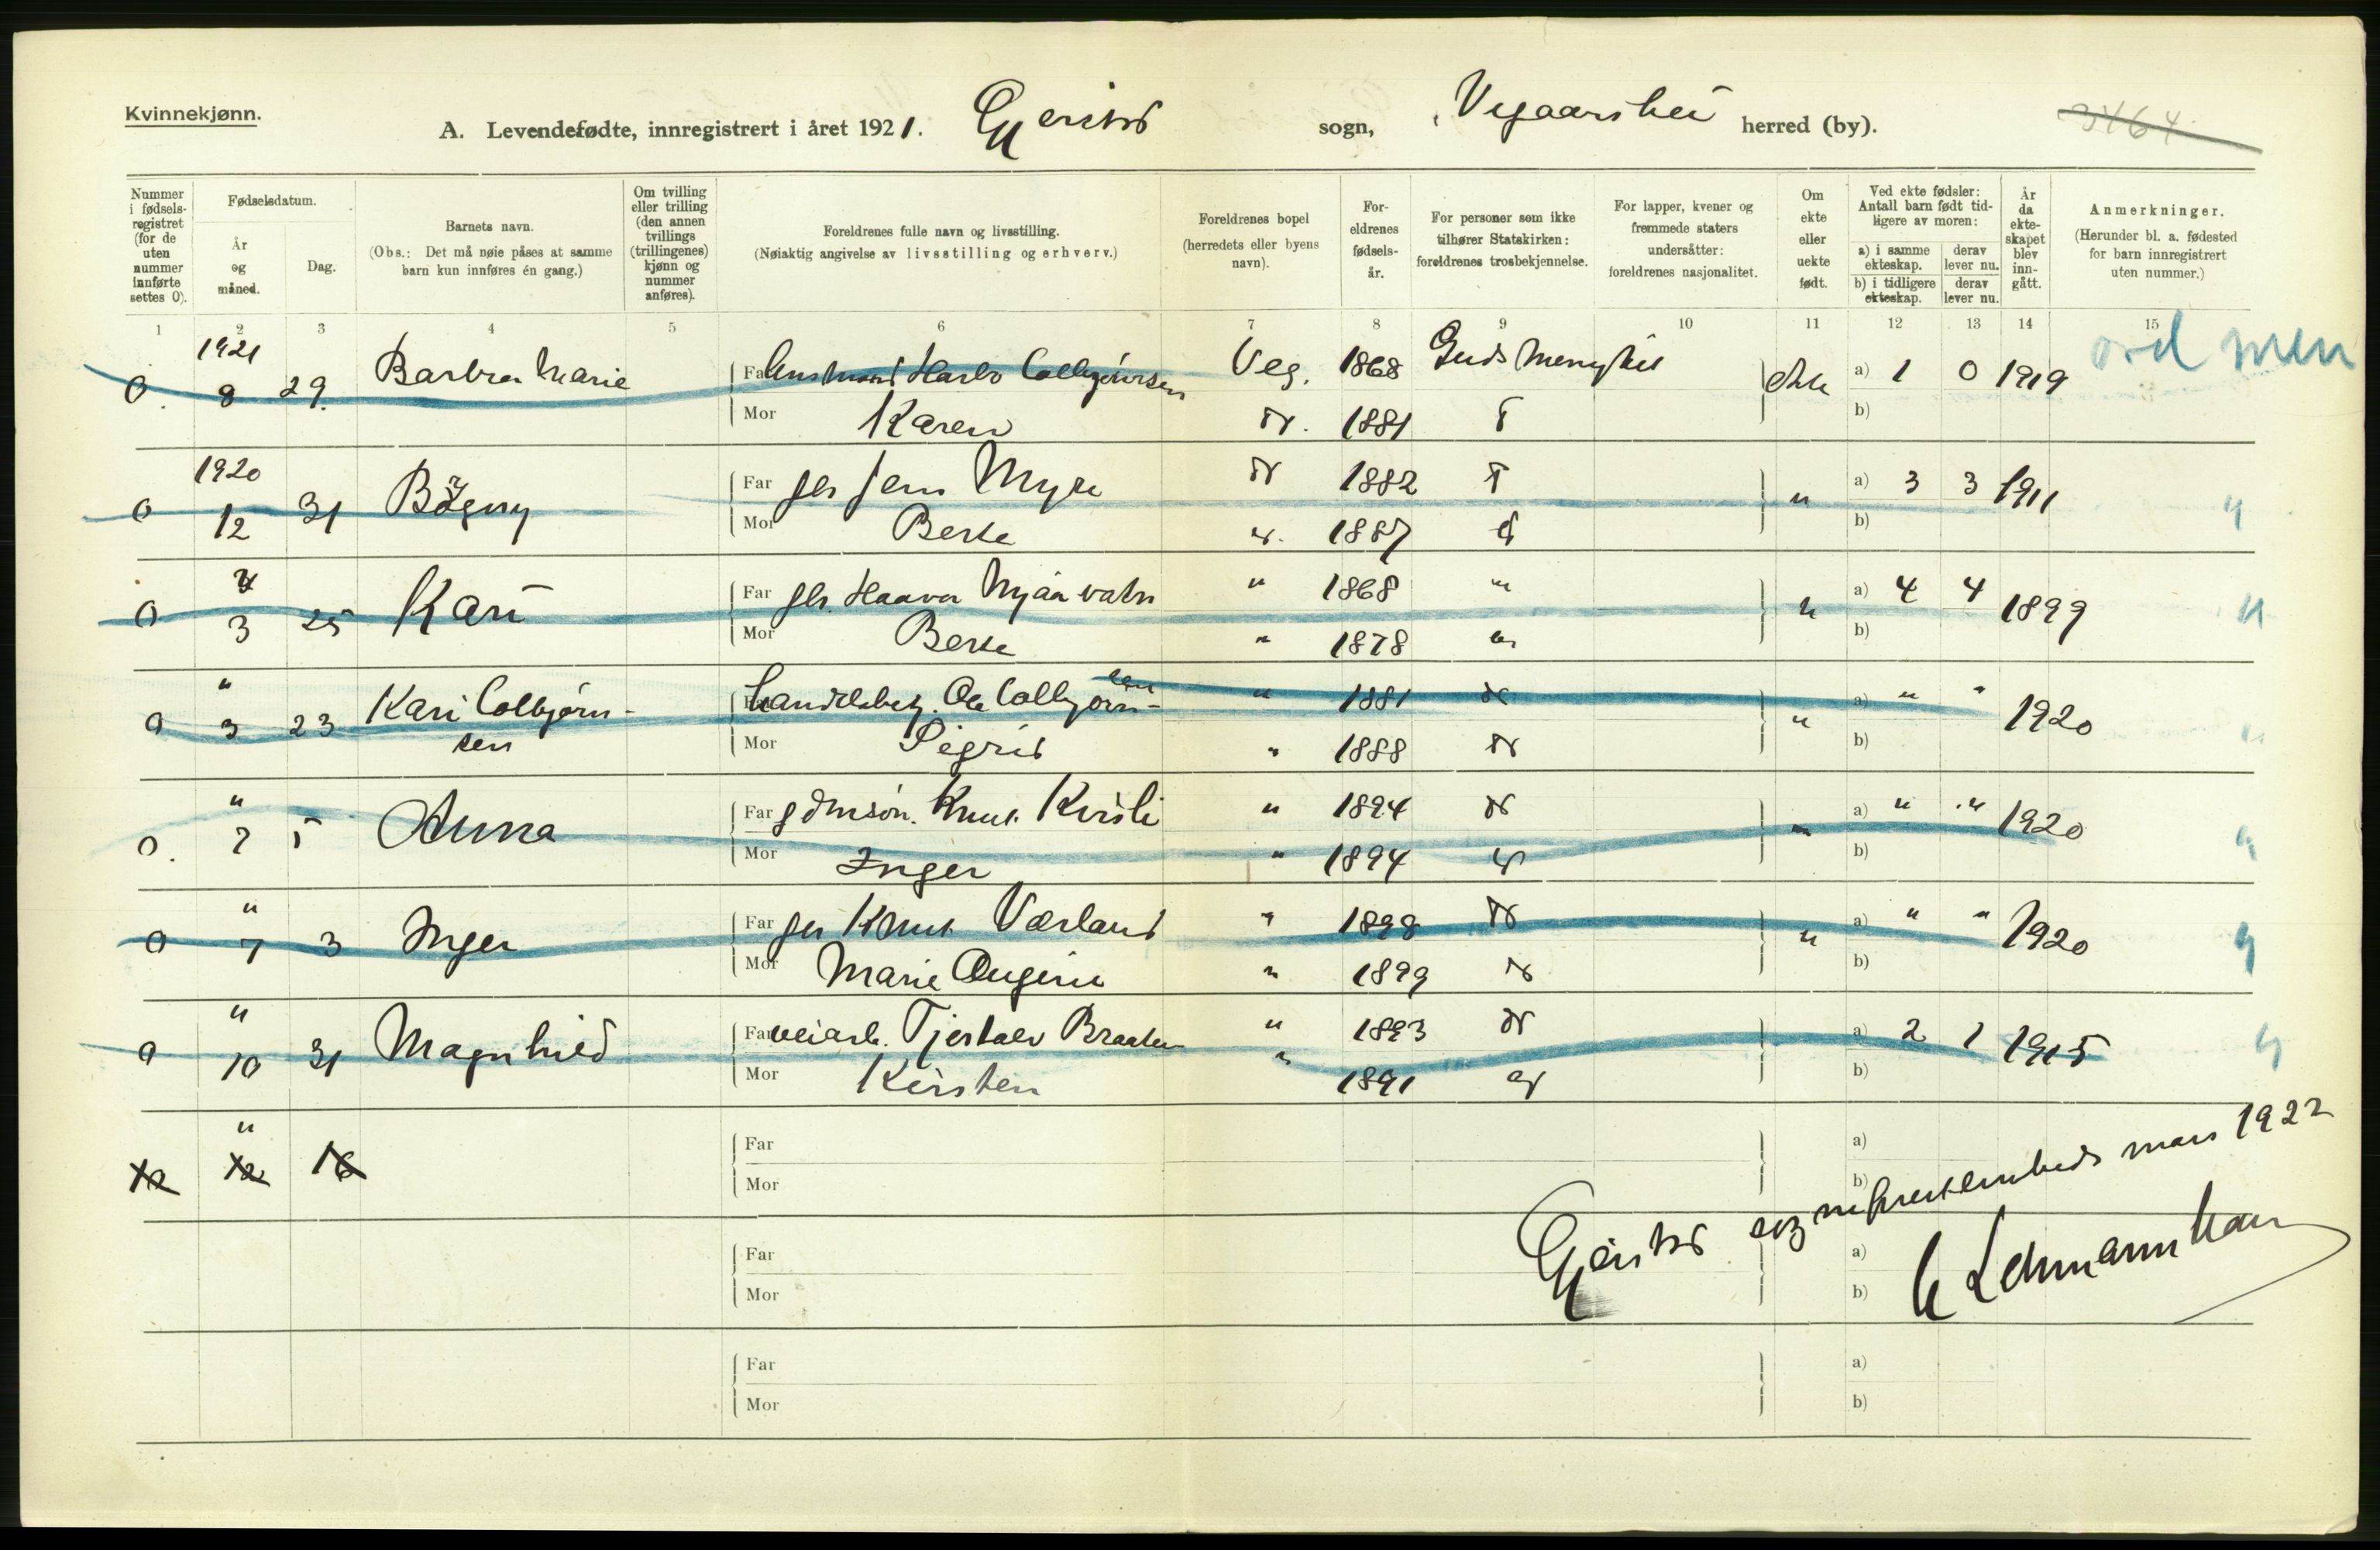 Kvinnekjønn.
A. Levendefødte, innregistrert i året 1921. Gjerstad sogn, Vegaarshei herred (by).
3464
Nummer i fødselsregistret (for de uten nummer innførte settes 0).
Fødselsdatum.
År og måned.
Dag.
Barnets navn.
(Obs.: Det må nøie påses at samme barn kun innføres én gang.)
Om tvilling eller trilling (den annen tvillings (trillingenes) kjønn og nummer anføres).
Foreldrenes fulle navn og livsstilling.
(Nøiaktig angivelse av livsstilling og erhverv.)
Foreldrenes bopel (herredets eller byens navn).
Foreldrenes fødselsår.
For personer som ikke tilhører Statskirken: foreldrenes trosbekjennelse.
For lapper, kvener og fremmede staters undersåtter: foreldrenes nasjonalitet.
Om ekte eller uekte født.
Ved ekte fødsler: Antall barn født tidligere av moren:
a) i samme ekteskap. derav lever nu.
b) i tidligere ekteskap. derav lever nu.
År da ekteskapet blev inngått.
Anmerkninger.
(Herunder bl. a. fødested for barn innregistrert uten nummer.)
1 2 3 4 5 6 7 8 9 10 11 12 13 14 15
1921
0. 8 29. Barbra Marie Far Lensmand Colbjørnsen Veg. 1868 Guds Menighet ekte a) 1 0 1919
Mor Karen 1881 b)
1920
0 12 31 Far Jens Myre 1882 " a) 3 3 1911 "
Mor Berte 1887 b)
0 3 25 Kari Far Haavor " 1868 " " a) 4 4 1899 "
Mor Berte " 1878 " b)
"
0 3 23 Kari Colbjørnsen Colbjørnsen " 1881 " a) " " 1920 "
Mor Sigrid " 1888 b)
"
0. 7 5 Anna Far Knut " 1894 " a) " " 1920 "
Mor Inger " 1894 b)
"
0 7 3 Inger Far Knut Værland " 1898 " a) " " 1920 "
Mor Marie " 1899 b)
"
0 10 31 Magnhild Far veiarb. Tjostolv Braaten " 1893 a) 2 1 1915 "
Mor Kirsten " 1891 b)
"
12 12 16 Far a)
Mor b)
Gjerstad sogneprestembede mars 1922
Far a)
Mor b)
Far a)
Mor b)